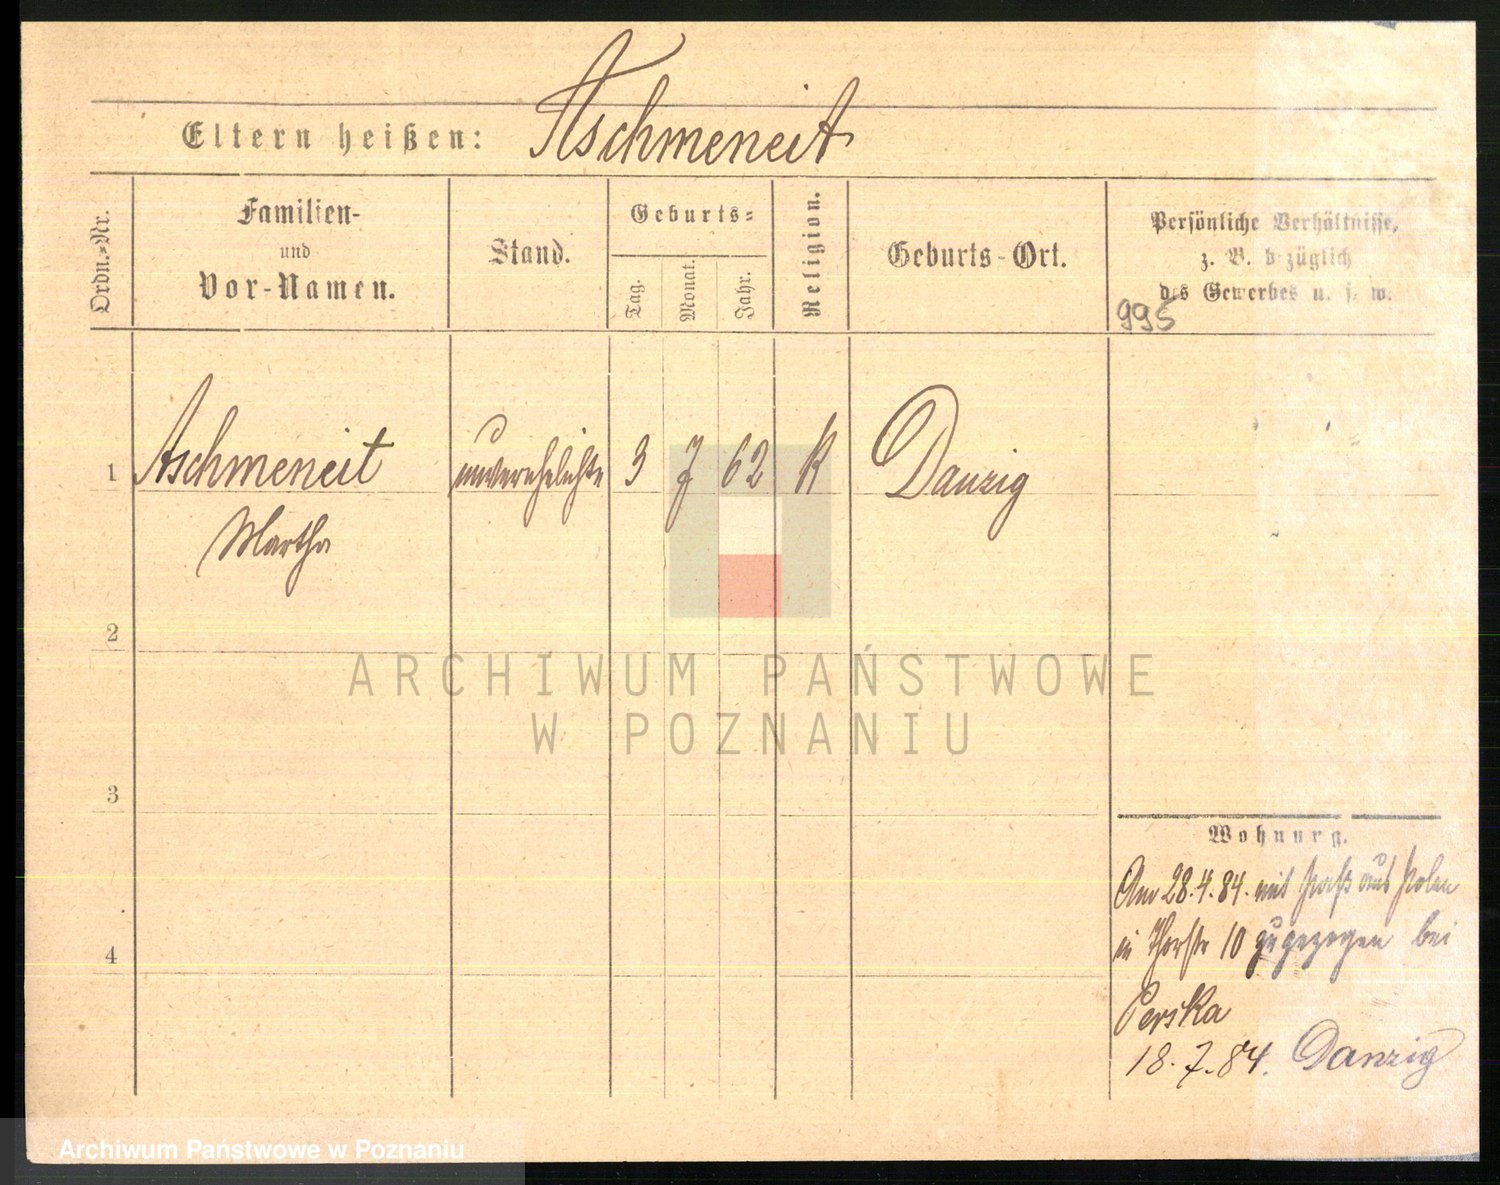 Eltern heißen: Aschmeneit
Ordn.-Nr.
Familien-
und
Vor-Namen.
Stand.
Geburts-
Tag.
Monat.
Jahr.
Religion.
Geburts-Ort.
Persönliche Verhältnisse,
z. B. bezüglich
des Gewerbes u. s. w.
995
1 Aschmeneit unverehelichte 3 7 62 K Danzig
Martha
2
ARCHIWUM PAŃSTWOWE
W POZNANIU
3
Wohnung.
Am 28.4.84. mit Paß aus Polen
in 10 zugezogen bei
Perska
4
18.7.84. Danzig
Archiwum Państwowe w Poznaniu